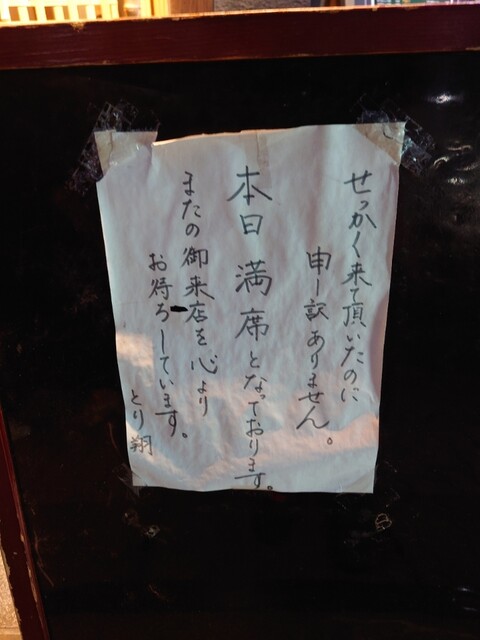 せっかく来て頂いたのに
申し訳ありません。
本日 満席となっております。
またの御来店を心より
お待ちしています。
とり翔